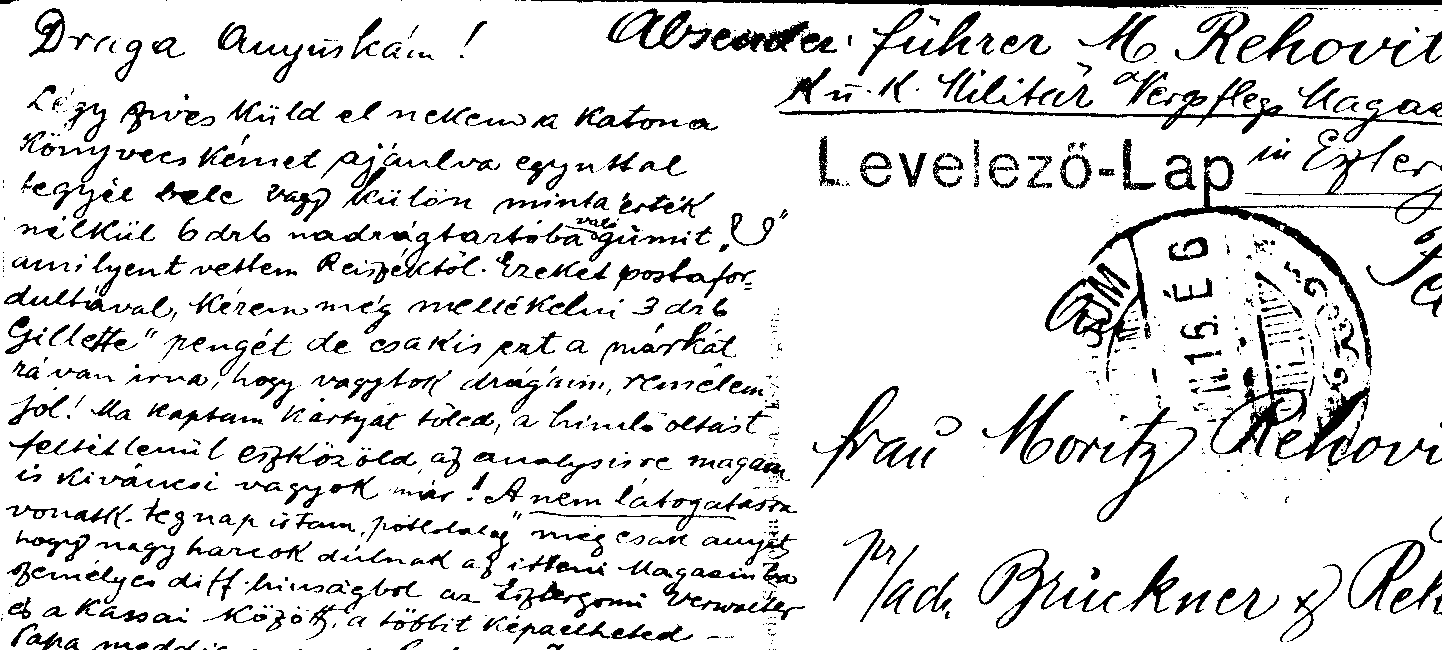 Draga Anyuskám!
Légy szives küld el nekem a katona
könyvecskémet ajánlva egyuttal
tegyél bele vagy külön minta érték
nélkül 6 drb nadrágtartóba való gümit
amilyent vettem Reiszéktől. Ezeket postafor-
dultával, kérem még mellékelni 3 drb
Gillette" pengét de csakis ezt a márkát
rá van irva, hogy vagytok drágáim, remélem
jól! Ma kaptam kártyát tőled, a himlő oltást
feltétlenül eszközöld, az analysisre magam
is kiváncsi vagyok már! A nem látogatásra
vonatk. tegnap irtam, pótlólag még csak annyit
hogy nagy harcok dúlnak az itteni Magasinba
személyes diff. hiuságból az Esztergomi Verwalter
és a Kassai között, a többit képzelheted —
Papa
Absender: führer M. Rehovit
K. u. K. Militär Verpflegs Magas
Levelező-Lap in Eszterg
16. É 6
Frau Moritz Rehovi
pr/adr. Brückner & Reh